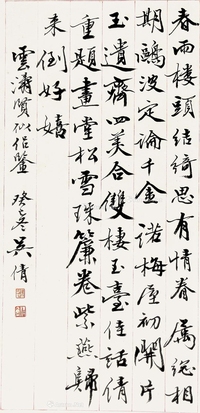 春雨樓頭結綺思有情眷屬總相
期鷗波定論千金諾梅屋初開片
玉遺齊四美合雙棲玉臺佳話倩
重題畫堂松雪珠簾卷紫燕歸
來倒好嬉
雲瀟賢仙侶鑒 癸冬 吳倩